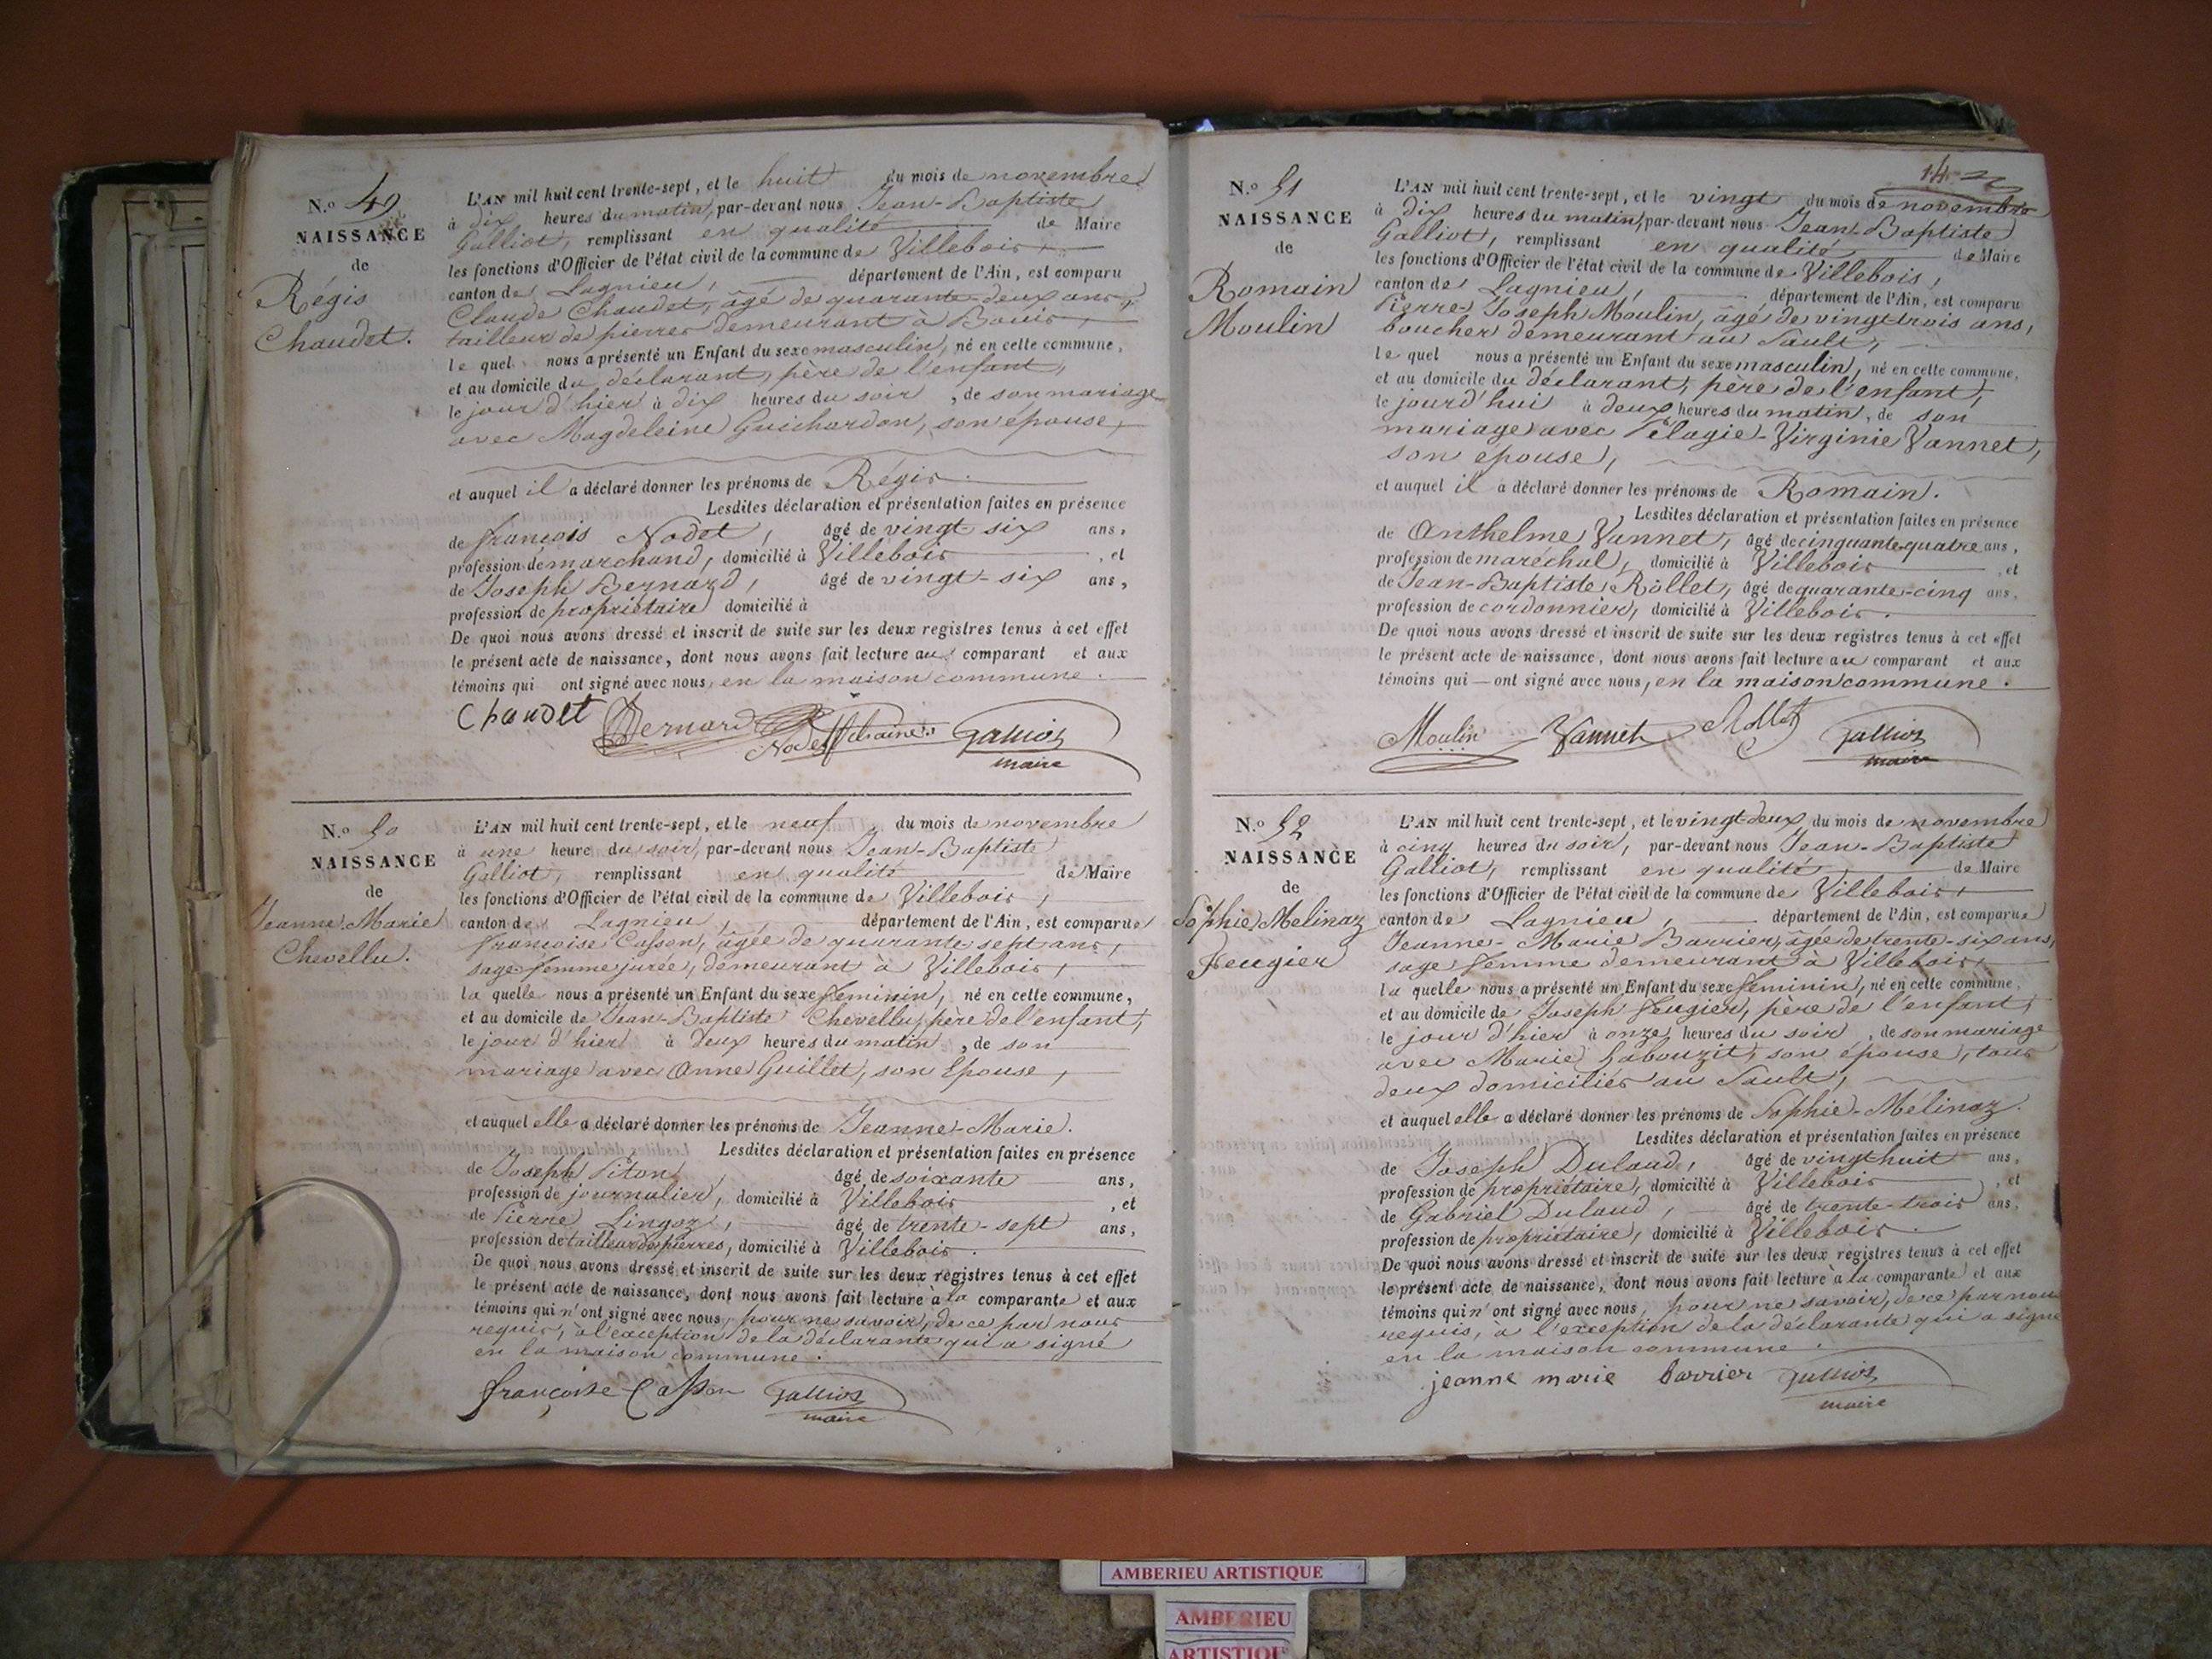 N.o 49
NAISSANCE
de
Régis
Chaudet.
L'AN mil huit cent trente-sept, et le huit du mois de novembre
à dix heures du matin, par-devant nous Jean-Baptiste
Galliot, remplissant en qualité de Maire
les fonctions d'Officier de l'état civil de la commune de Villebois,
canton de Lagnieu, département de l'Ain, est comparu
Claude Chaudet, âgé de quarante-deux ans,
tailleur de pierres demeurant à Bouis,
le quel nous a présenté un Enfant du sexe masculin, né en cette commune,
et au domicile du déclarant, père de l'enfant,
le jour d'hier à dix heures du soir, de son mariage
avec Magdeleine Guichardon, son épouse,
et auquel il a déclaré donner les prénoms de Régis.
Lesdites déclaration et présentation faites en présence
de françois Nodet, âgé de vingt-six ans,
profession de marchand, domicilié à Villebois, et
de Joseph Bernard, âgé de vingt-six ans,
profession de propriétaire domicilié à
De quoi nous avons dressé et inscrit de suite sur les deux registres tenus à cet effet
le présent acte de naissance, dont nous avons fait lecture au comparant et aux
témoins qui ont signé avec nous, en la maison commune.
Chaudet Bernard Nodet Galliot
maire
N.o 50
NAISSANCE
de
Jeanne Marie
Chevellu.
L'AN mil huit cent trente-sept, et le neuf du mois de novembre
à une heure du soir, par-devant nous Jean-Baptiste
Galliot, remplissant en qualité de Maire
les fonctions d'Officier de l'état civil de la commune de Villebois,
canton de Lagnieu, département de l'Ain, est comparue
françoise Casson, âgée de quarante sept ans,
sage femme jurée, demeurant à Villebois,
la quelle nous a présenté un Enfant du sexe feminin, né en cette commune,
et au domicile de Jean-Baptiste Chevellu, père de l'enfant,
le jour d'hier à deux heures du matin, de son
mariage avec Anne Guillet, son Epouse,
et auquel elle a déclaré donner les prénoms de Jeanne-Marie.
Lesdites déclaration et présentation faites en présence
de Joseph Piton, âgé de soixante ans,
profession de journalier, domicilié à Villebois, et
de Pierre Lingoz, âgé de trente-sept ans,
profession de tailleur de pierres, domicilié à Villebois.
De quoi nous avons dressé et inscrit de suite sur les deux registres tenus à cet effet
le présent acte de naissance, dont nous avons fait lecture à la comparante et aux
témoins qui n'ont signé avec nous, pour ne savoir, de ce par nous
requis, à l'exception de la déclarante qui a signé
en la maison commune.
françoise Casson Galliot
maire
14
N.o 51
NAISSANCE
de
Romain
Moulin
L'AN mil huit cent trente-sept, et le vingt du mois de novembre
à dix heures du matin, par-devant nous Jean-Baptiste
Galliot, remplissant en qualité de Maire
les fonctions d'Officier de l'état civil de la commune de Villebois,
canton de Lagnieu, département de l'Ain, est comparu
Pierre Joseph Moulin, âgé de vingt trois ans,
boucher demeurant au Sault,
le quel nous a présenté un Enfant du sexe masculin, né en cette commune,
et au domicile du déclarant, père de l'enfant,
le jourd'hui à deux heures du matin, de son
mariage avec Pélagie-Virginie Vannet,
son épouse,
et auquel il a déclaré donner les prénoms de Romain.
Lesdites déclaration et présentation faites en présence
de Anthelme Vannet, âgé de cinquante-quatre ans,
profession de maréchal, domicilié à Villebois, et
de Jean-Baptiste Rollet, âgé de quarante-cinq ans,
profession de cordonnier, domicilié à Villebois.
De quoi nous avons dressé et inscrit de suite sur les deux registres tenus à cet effet
le présent acte de naissance, dont nous avons fait lecture au comparant et aux
témoins qui ont signé avec nous, en la maison commune.
Moulin Vannet Rollet Galliot
maire
N.o 52
NAISSANCE
de
Sophie Melinaz
Feugier
L'AN mil huit cent trente-sept, et le vingt-deux du mois de novembre
à cinq heures du soir, par-devant nous Jean-Baptiste
Galliot, remplissant en qualité de Maire
les fonctions d'Officier de l'état civil de la commune de Villebois,
canton de Lagnieu, département de l'Ain, est comparue
Jeanne-Marie Barrier, âgée de trente-six ans,
sage femme demeurant à Villebois,
la quelle nous a présenté un Enfant du sexe feminin, né en cette commune,
et au domicile de Joseph Feugier, père de l'enfant,
le jour d'hier à onze heures du soir, de son mariage
avec Marie Gabouzit, son épouse, tous
deux domiciliés au Sault,
et auquel elle a déclaré donner les prénoms de Sophie-Mélinaz.
Lesdites déclaration et présentation faites en présence
de Joseph Dulaud, âgé de vingt huit ans,
profession de propriétaire, domicilié à Villebois, et
de Gabriel Dulaud, âgé de trente-trois ans,
profession de propriétaire, domicilié à Villebois.
De quoi nous avons dressé et inscrit de suite sur les deux registres tenus à cet effet
le présent acte de naissance, dont nous avons fait lecture à la comparante et aux
témoins qui n'ont signé avec nous, pour ne savoir, de ce par nous
requis, à l'exception de la déclarante qui a signé
en la maison commune.
jeanne marie barrier Galliot
maire
AMBERIEU ARTISTIQUE
AMBERIEU
ARTISTIQUE